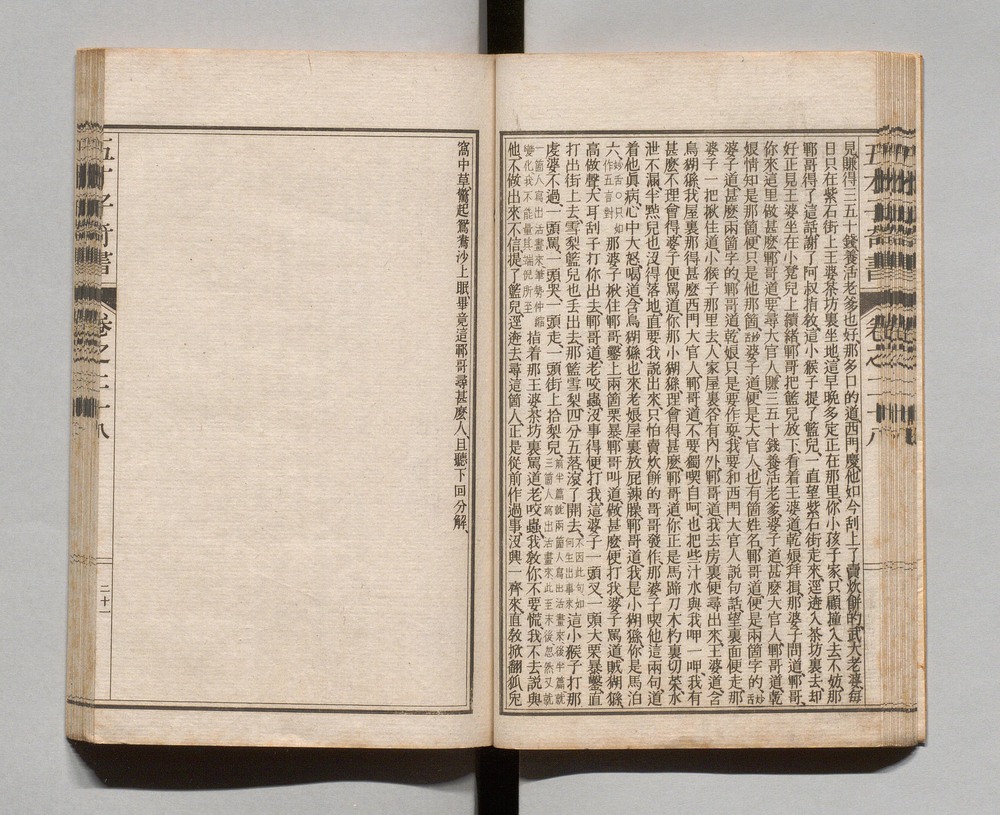 見賺得三五十錢養活老爹也好那多口的道西門慶他如今刮上了賣炊餅的武大老婆每
日只在紫石街上王婆茶坊裏坐地這早晚多定正在那里你小孩子家只顧撞入去不妨那
鄆哥得了這話謝了阿叔指敎這小猴子提了籃兒一直望紫石街走來逕迯入茶坊裏去却
好正見王婆坐在小凳兒上績緒鄆哥把籃兒放下看着王婆道乾娘拜揖那婆子問道鄆哥
你來這里做甚麽鄆哥道要尋大官人賺三五十錢養活老爹婆子道甚麽大官人鄆哥道乾
娘情知是那箇便只是他那箇妙舌婆子道便是大官人也有箇姓名鄆哥道便是兩箇字的妙舌
婆子道甚麽兩箇字的鄆哥道乾娘只是要作耍我要和西門大官人說句話望裏面便走那
婆子一把揪住道小猴子那里去人家屋裏各有內外鄆哥道我去房裏便尋出來王婆道含
鳥猢猻我屋裏那得甚麽西門大官人鄆哥道不要獨喫自呵也把些汁水與我呷一呷我有
甚麽不理會得婆子便罵道你那小猢猻理會得甚麽鄆哥道你正是馬蹄刀木杓裏切菜水
泄不漏半點兒也沒得落地直要我說出來只怕賣炊餅的哥哥發作那婆子喫他這兩句道
着他眞病心中大怒喝道含鳥猢猻也來老娘屋裏放屁辣臊鄆哥道我是小猢猻你是馬泊
六妙舌○只如作五言對那婆子揪住鄆哥鑿上兩箇栗暴鄆哥叫道做甚麽便打我婆子罵道賊猢猻
高做聲大耳刮子打你出去鄆哥道老咬蟲沒事得便打我這婆子一頭叉一頭大栗暴鑿直
打出街上去雪梨籃兒也丟出去那籃雪梨四分五落滾了開去不因此句如何生出事來這小猴子打那
虔婆不過一頭罵一頭哭一頭走一頭街上拾梨兒前半篇就兩箇人寫出活畫來後半篇就三箇人寫出活畫來此至末後忽然又就
一箇人寫出活畫來筆勢伸縮變化我不能量其端倪所至指着那王婆茶坊裏罵道老咬蟲我敎你不要慌我不去說與
他不做出來不信提了籃兒逕迯去尋這箇人正是從前作過事沒興一齊來直敎掀翻狐兎
窩中草驚起鴛鴦沙上眠畢竟這鄆哥尋甚麽人且聽下回分解
卷之二十八
二十一